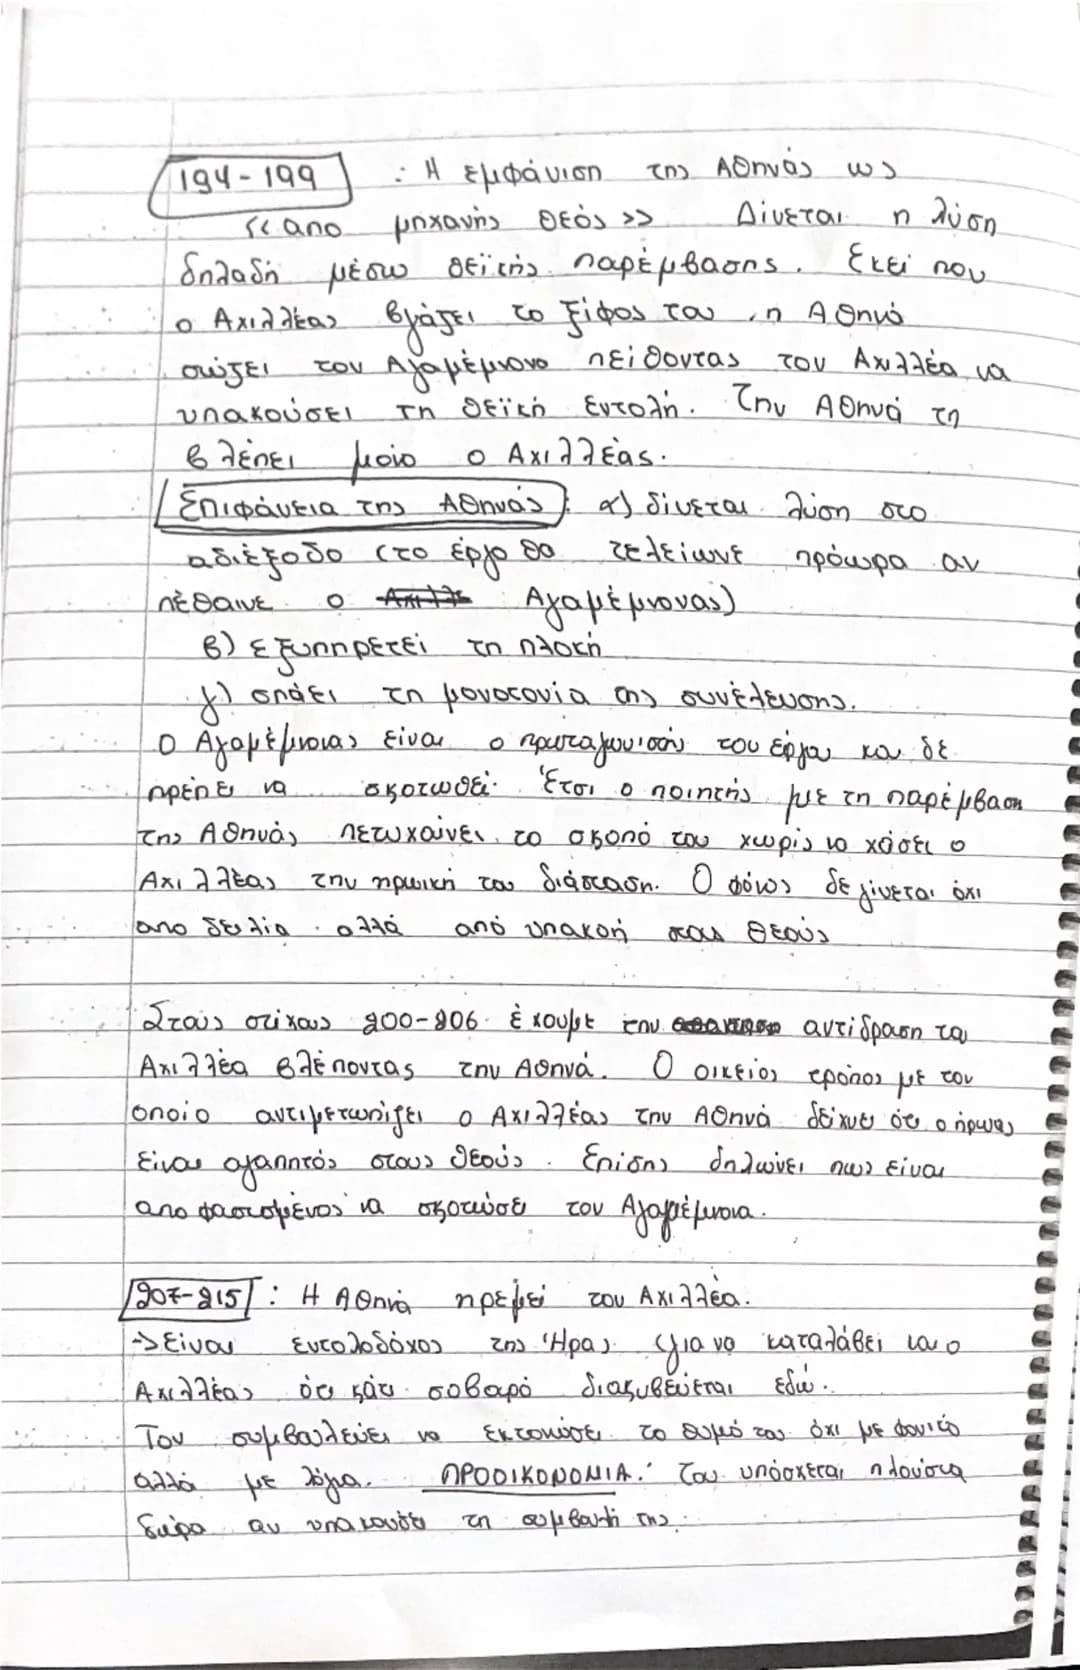 194-199 : Η εμφάνιση της Αθηνάς ως
<< απο μηχανής θεός >> Δίνεται η λύση
δηλαδή μέσω θεϊκής παρέμβασης. Εκεί που
ο Αχιλλέας βγάζει το ξίφος του, η Αθηνά
σώζει τον Αγαμέμνονα πείθοντας τον Αχιλλέα να
υπακούσει τη θεϊκή εντολή. Την Αθηνά τη
βλέπει μόνο ο Αχιλλέας.
Επιφάνεια της Αθηνάς : α) δίνεται λύση στο
αδιέξοδο (το έργο θα τελείωνε πρόωρα αν
πέθαινε ο Αγαμέμνονας)
β) εξυπηρετεί τη πλοκή
γ) σπάει τη μονοτονία της συνέλευσης.
Ο Αγαμέμνονας είναι ο πρωταγωνιστής του έργου και δε
πρέπει να σκοτωθεί. Έτσι ο ποιητής με τη παρέμβαση
της Αθηνάς πετυχαίνει το σκοπό του χωρίς να χάσει ο
Αχιλλέας την ηρωική του διάσταση. Ο φόνος δε γίνεται όχι
απο δειλία αλλά από υπακοή στους θεούς
Στους στίχους 200-206 έχουμε την αντίδραση του
Αχιλλέα βλέποντας την Αθηνά. Ο οικείος τρόπος με τον
οποίο αντιμετωπίζει ο Αχιλλέας την Αθηνά δείχνει ότι ο ήρωας
είναι αγαπητός στους θεούς. Επίσης δηλώνει πως είναι
αποφασισμένος να σκοτώσει τον Αγαμέμνονα.
207-215 : Η Αθηνά ηρεμεί τον Αχιλλέα.
-> Είναι εντολοδόχος της Ήρας (για να καταλάβει και ο
Αχιλλέας ότι κάτι σοβαρό διακυβεύεται εδώ.
Τον συμβουλεύει να εκτονώσει το θυμό του όχι με φονικό
αλλά με λόγια. ΠΡΟΟΙΚΟΝΟΜΙΑ: Του υπόσχεται πλούσια
δώρα αν υπακούσει τη συμβουλή της.